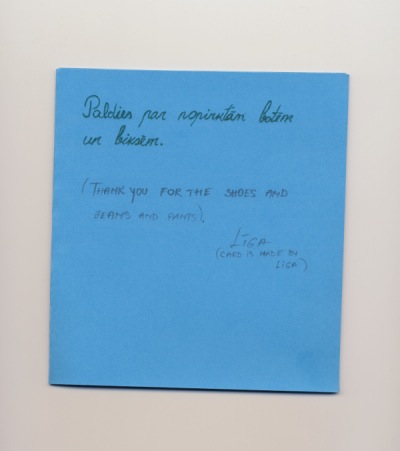 Paldies par nopirktām botēm
un biksēm.
(THANK YOU FOR THE SHOES AND
JEANS AND PANTS).
LĪGA
(CARD IS MADE BY
LĪGA)